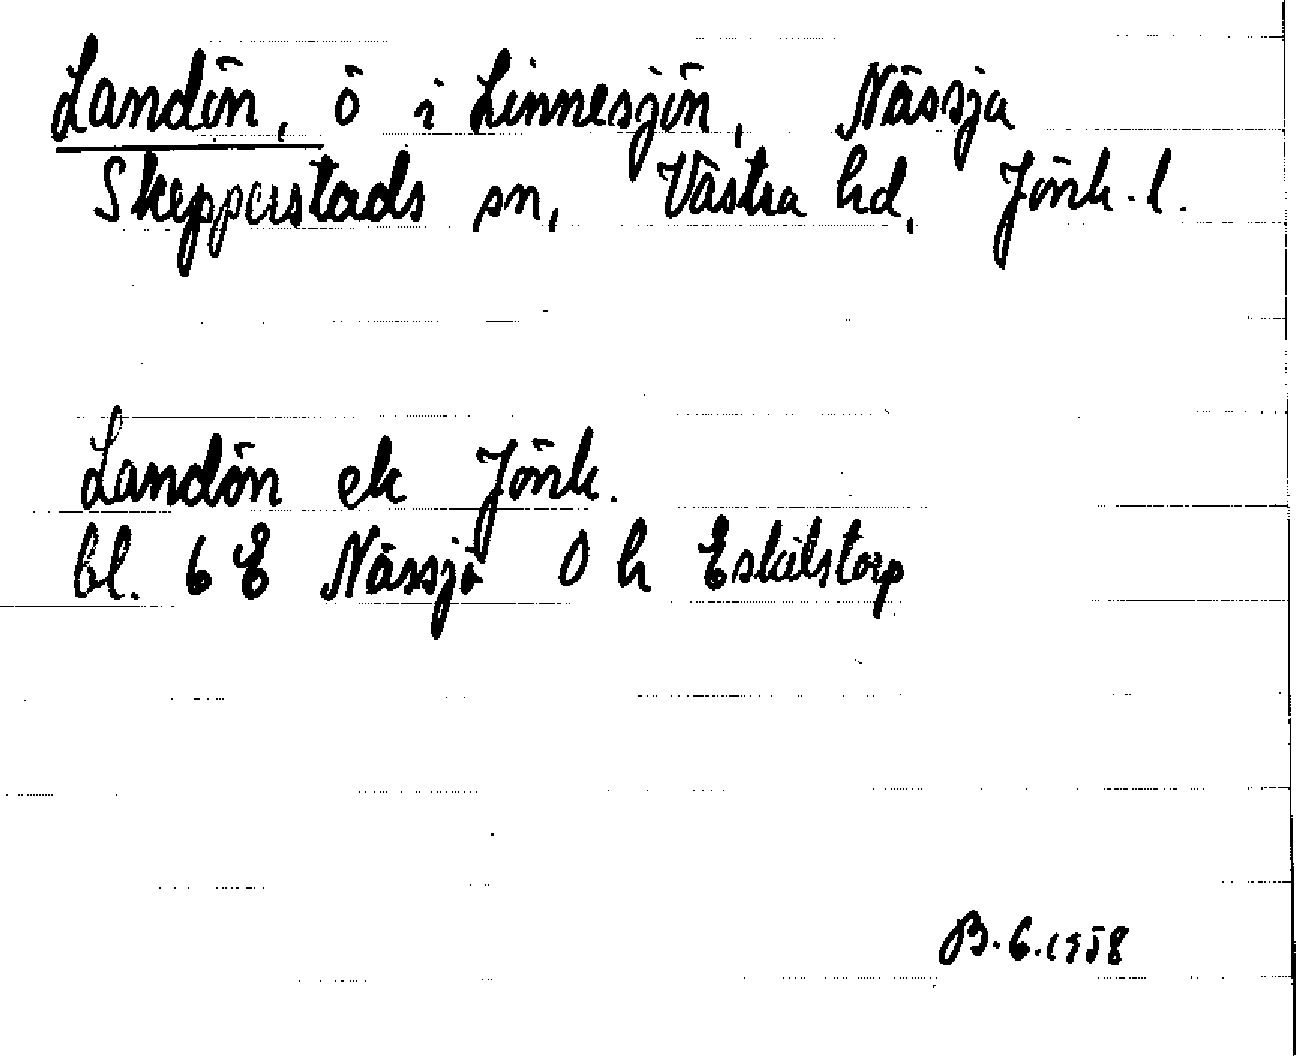 Landön, ö i Linnesjön, Nässja
Skepperstads sn, Västra hd, Jönk. l.
Landön ek Jönk.
bl. 6 E Nässjö O h Eskilstorp
B. G. 1958